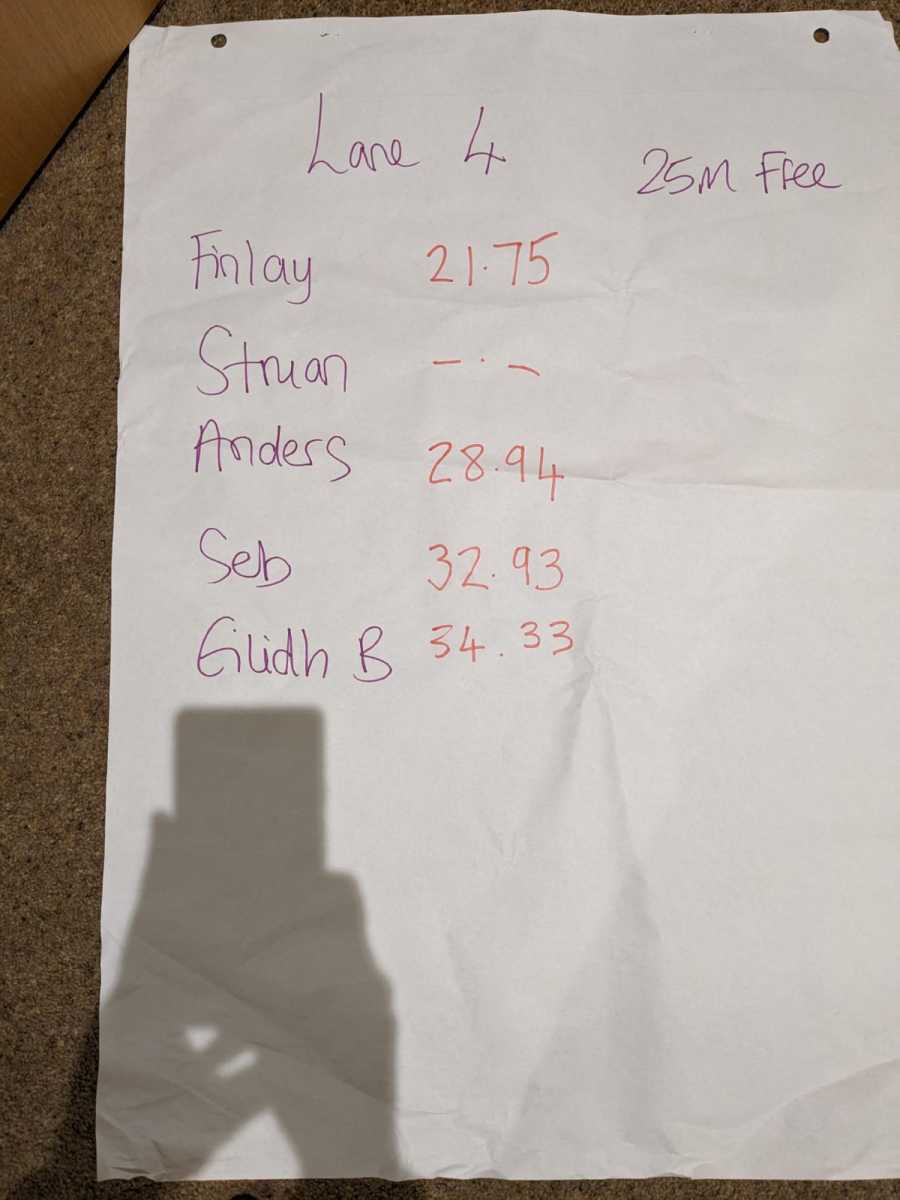 Lane 4
25M Free
Finlay 21.75
Struan – . –
Anders 28.94
Seb 32.93
Eilidh B 34.33